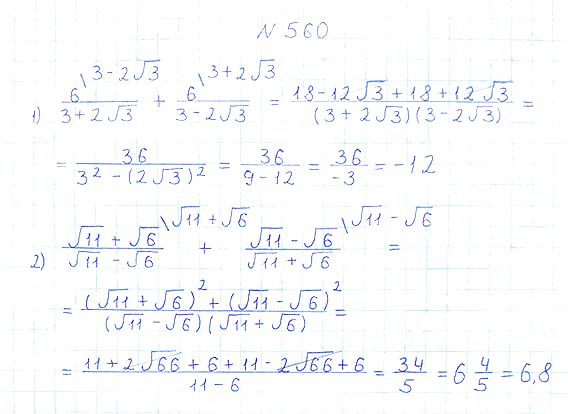 N 560
1) 6\3-2√3 / 3+2√3 + 6\3+2√3 / 3-2√3 = 18-12√3+18+12√3 / (3+2√3)(3-2√3) =
= 36 / 3²-(2√3)² = 36 / 9-12 = 36 / -3 = -12
2) √11+√6\√11+√6 / √11-√6 + √11-√6\√11-√6 / √11+√6 =
= (√11+√6)²+(√11-√6)² / (√11-√6)(√11+√6) =
= 11+2√66+6+11-2√66+6 / 11-6 = 34 / 5 = 6 4/5 = 6,8